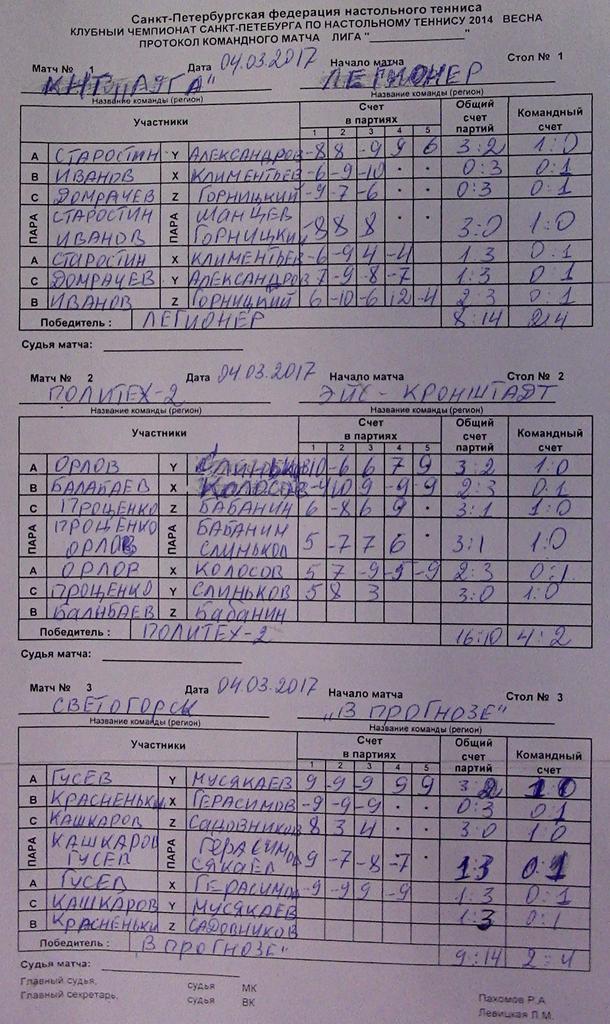 Санкт-Петербургская федерация настольного тенниса
КЛУБНЫЙ ЧЕМПИОНАТ САНКТ-ПЕТЕБУРГА ПО НАСТОЛЬНОМУ ТЕННИСУ 2014 ВЕСНА
ПРОТОКОЛ КОМАНДНОГО МАТЧА ЛИГА "_______________"
Матч № 1 Дата 04.03.2017 Начало матча Стол № 1
ЛЕГИОНЕР
Название команды (регион) Название команды (регион)
Участники Счет в партиях Общий счет партий Командный счет
1 2 3 4 5
A СТАРОСТИН Y АЛЕКСАНДРОВ -8 8 -9 9 6 3:2 1:0
B ИВАНОВ X КЛИМЕНТЬЕВ -6 -9 -10 · · 0:3 0:1
C ДОМРАЧЕВ Z ГОРНИЦКИЙ -9 -7 -6 · · 0:3 0:1
ПАРА СТАРОСТИН ИВАНОВ ПАРА ШАНЦЕВ ГОРНИЦКИЙ 8 8 8 · · 3:0 1:0
A СТАРОСТИН X КЛИМЕНТЬЕВ -6 -9 4 -4 1:3 0:1
C ДОМРАЧЕВ Y АЛЕКСАНДРОВ 7 -9 -8 -7 1:3 0:1
B ИВАНОВ Z ГОРНИЦКИЙ 6 -10 -6 12 -4 2:3 0:1
Победитель : ЛЕГИОНЕР 8:14 2:4
Судья матча:
Матч № 2 Дата 04.03.2017 Начало матча Стол № 2
ПОЛИТЕХ-2 ЭЙС - КРОНШТАДТ
Название команды (регион) Название команды (регион)
Участники Счет в партиях Общий счет партий Командный счет
1 2 3 4 5
A ОРЛОВ Y СЛИНЬКОВ 10 -6 6 7 9 3:2 1:0
B БАЛАБАЕВ X КОЛОСОВ -4 10 9 -9 -9 2:3 0:1
C ПРОЩЕНКО Z БАБАНИН 6 -8 6 9 · 3:1 1:0
ПАРА ПРОЩЕНКО ОРЛОВ ПАРА БАБАНИН СЛИНЬКОВ 5 -7 7 6 · 3:1 1:0
A ОРЛОВ X КОЛОСОВ 5 7 -9 -5 -9 2:3 0:1
C ПРОЩЕНКО Y СЛИНЬКОВ 5 8 3 3:0 1:0
B БАЛАБАЕВ Z Бабанин
Победитель : ПОЛИТЕХ-2 16:10 4:2
Судья матча:
Матч № 3 Дата 04.03.2017 Начало матча Стол № 3
СВЕТОГОРСК „В ПРОГНОЗЕ"
Название команды (регион) Название команды (регион)
Участники Счет в партиях Общий счет партий Командный счет
1 2 3 4 5
A ГУСЕВ Y МУСЯКАЕВ 9 -9 -9 9 9 3:2 1:0
B КРАСНЕНЬКИ X ГЕРАСИМОВ -9 -9 -9 · · 0:3 0:1
C КАШКАРОВ Z САДОВНИКОВ 8 3 4 · · 3:0 1:0
ПАРА КАШКАРОВ ГУСЕВ ПАРА ГЕРАСИМОВ 9 -7 -8 -7 · 1:3 0:1
A ГУСЕВ X ГЕРАСИМОВ -9 -9 9 -9 1:3 0:1
C КАШКАРОВ Y МУСЯКАЕВ 1:3 0:1
B КРАСНЕНЬКИ Z САДОВНИКОВ
Победитель : В ПРОГНОЗЕ" 9:14 2:4
Судья матча:
Главный судья, судья МК Пахомов Р.А
Главный секретарь, судья ВК Левицкая Л.М.